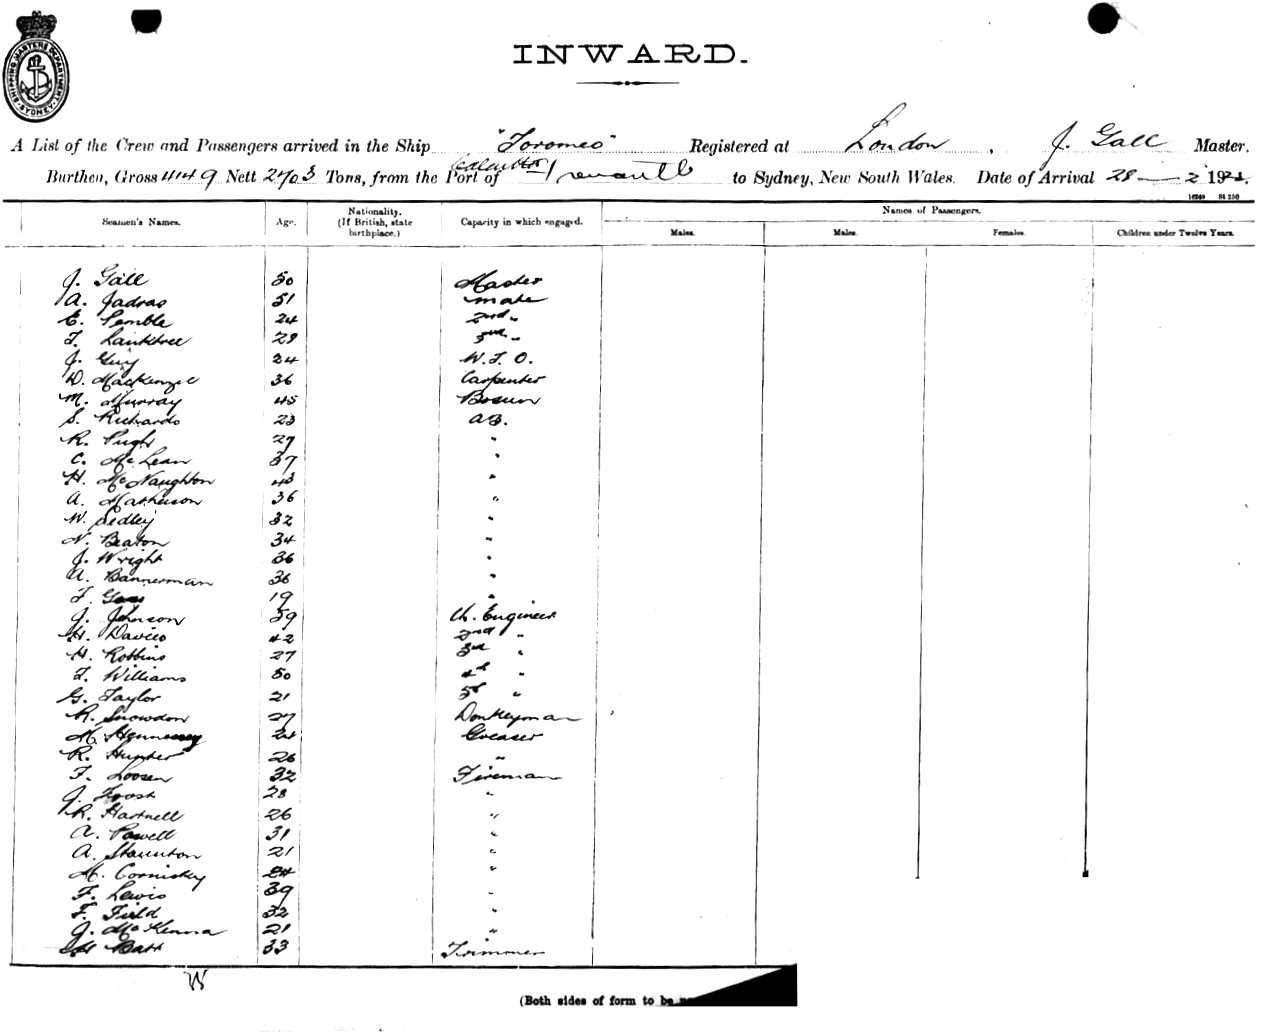 SHIPPING MASTERS DEPARTMENT SYDNEY
INWARD.
A List of the Crew and Passengers arrived in the Ship "Toromeo" Registered at London, J. Gall Master.
Burthen, Gross 4149 Nett 2703 Tons, from the Port of Calcutta to Sydney, New South Wales. Date of Arrival 28 — 2 192
Seamen's Names. Age. Nationality. (If British, state birthplace.) Capacity in which engaged. Names of Passengers.
Males. Males. Females. Children under Twelve Years.
J. Gall 50 Master
A. Jadras 51 Mate
E. Pemble 24 2nd "
T. Lanktree 29 3rd "
J. Guy 24 W.T.O.
D. MacKenzie 36 Carpenter
M. Murray 45 Bosun
S. Richards 23 AB.
R. Pugh 27 "
C. McLean 37 "
H. McNaughton 43 "
A. Matheson 36 "
W. Sedley 32 "
N. Beaton 34 "
J. Wright 36 "
A. Bannerman 36 "
T. 19 "
J. Johnson 39 Ch. Engineer
H. Davies 42 2nd "
H. Robbins 27 3rd "
T. Williams 50 4th "
G. Taylor 21 5th "
R. Snowdon 27 Donkeyman
M. Hennessy 24 Greaser
R. Hunter 26 "
F. Loosen 32 Fireman
J. Frost 28 "
R. Hartnell 26 "
A. Powell 31 "
A. Staunton 21 "
M. Corniskey 24 "
F. Lewis 39 "
F. Field 32 "
J. McKenna 21 "
Batt 33 Trimmer
(Both sides of form to be